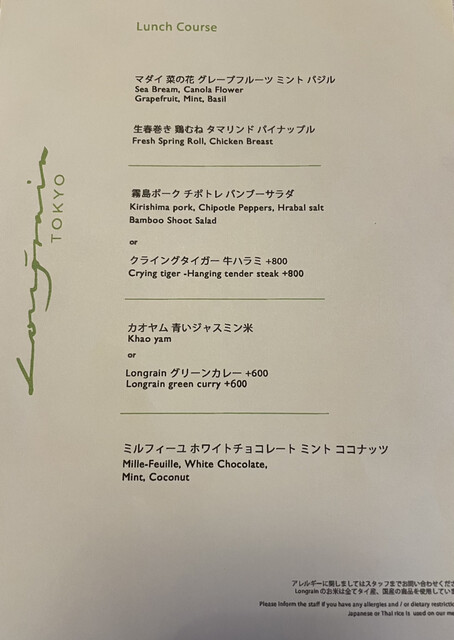 Lunch Course
マダイ 菜の花 グレープフルーツ ミント バジル
Sea Bream, Canola Flower
Grapefruit, Mint, Basil
生春巻き 鶏むね タマリンド パイナップル
Fresh Spring Roll, Chicken Breast
霧島ポーク チポトレ バンブーサラダ
Kirishima pork, Chipotle Peppers, Hrabal salt
Bamboo Shoot Salad
or
クライングタイガー 牛ハラミ +800
Crying tiger -Hanging tender steak +800
カオヤム 青いジャスミン米
Khao yam
or
Longrain グリーンカレー +600
Longrain green curry +600
ミルフィーユ ホワイトチョコレート ミント ココナッツ
Mille-Feuille, White Chocolate,
Mint, Coconut
Longrain
TOKYO
アレルギーに関しましてはスタッフまでお問い合わせくださ
Longrainのお米は全てタイ産、国産の商品を使用していま
Please inform the staff if you have any allergies and / or dietary restrictio
Japanese or Thai rice is used on our me